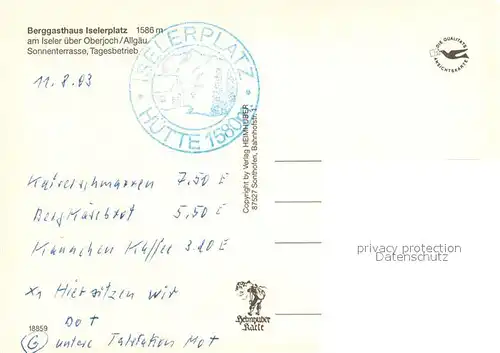 Berggasthaus Iselerplatz 1586 m
am Iseler über Oberjoch/Allgäu
Sonnenterrasse, Tagesbetrieb
ISELERPLATZ
HÜTTE 1580m
DIE QUALITÄTS
ANSICHTSKARTE
11.8.03
Copyright by Verlag HEIMHUBER
87527 Sonthofen, Bahnhofstr. 1
Kaiserschmarren 7,50 €
BergKäsebrot 5,50 €
Kännchen Kaffee 3.20 €
privacy protection
Datenschutz
x) Hier sitzen wir
Dot
Heimhuber
Karte
18859
G) untere Talstation Mot